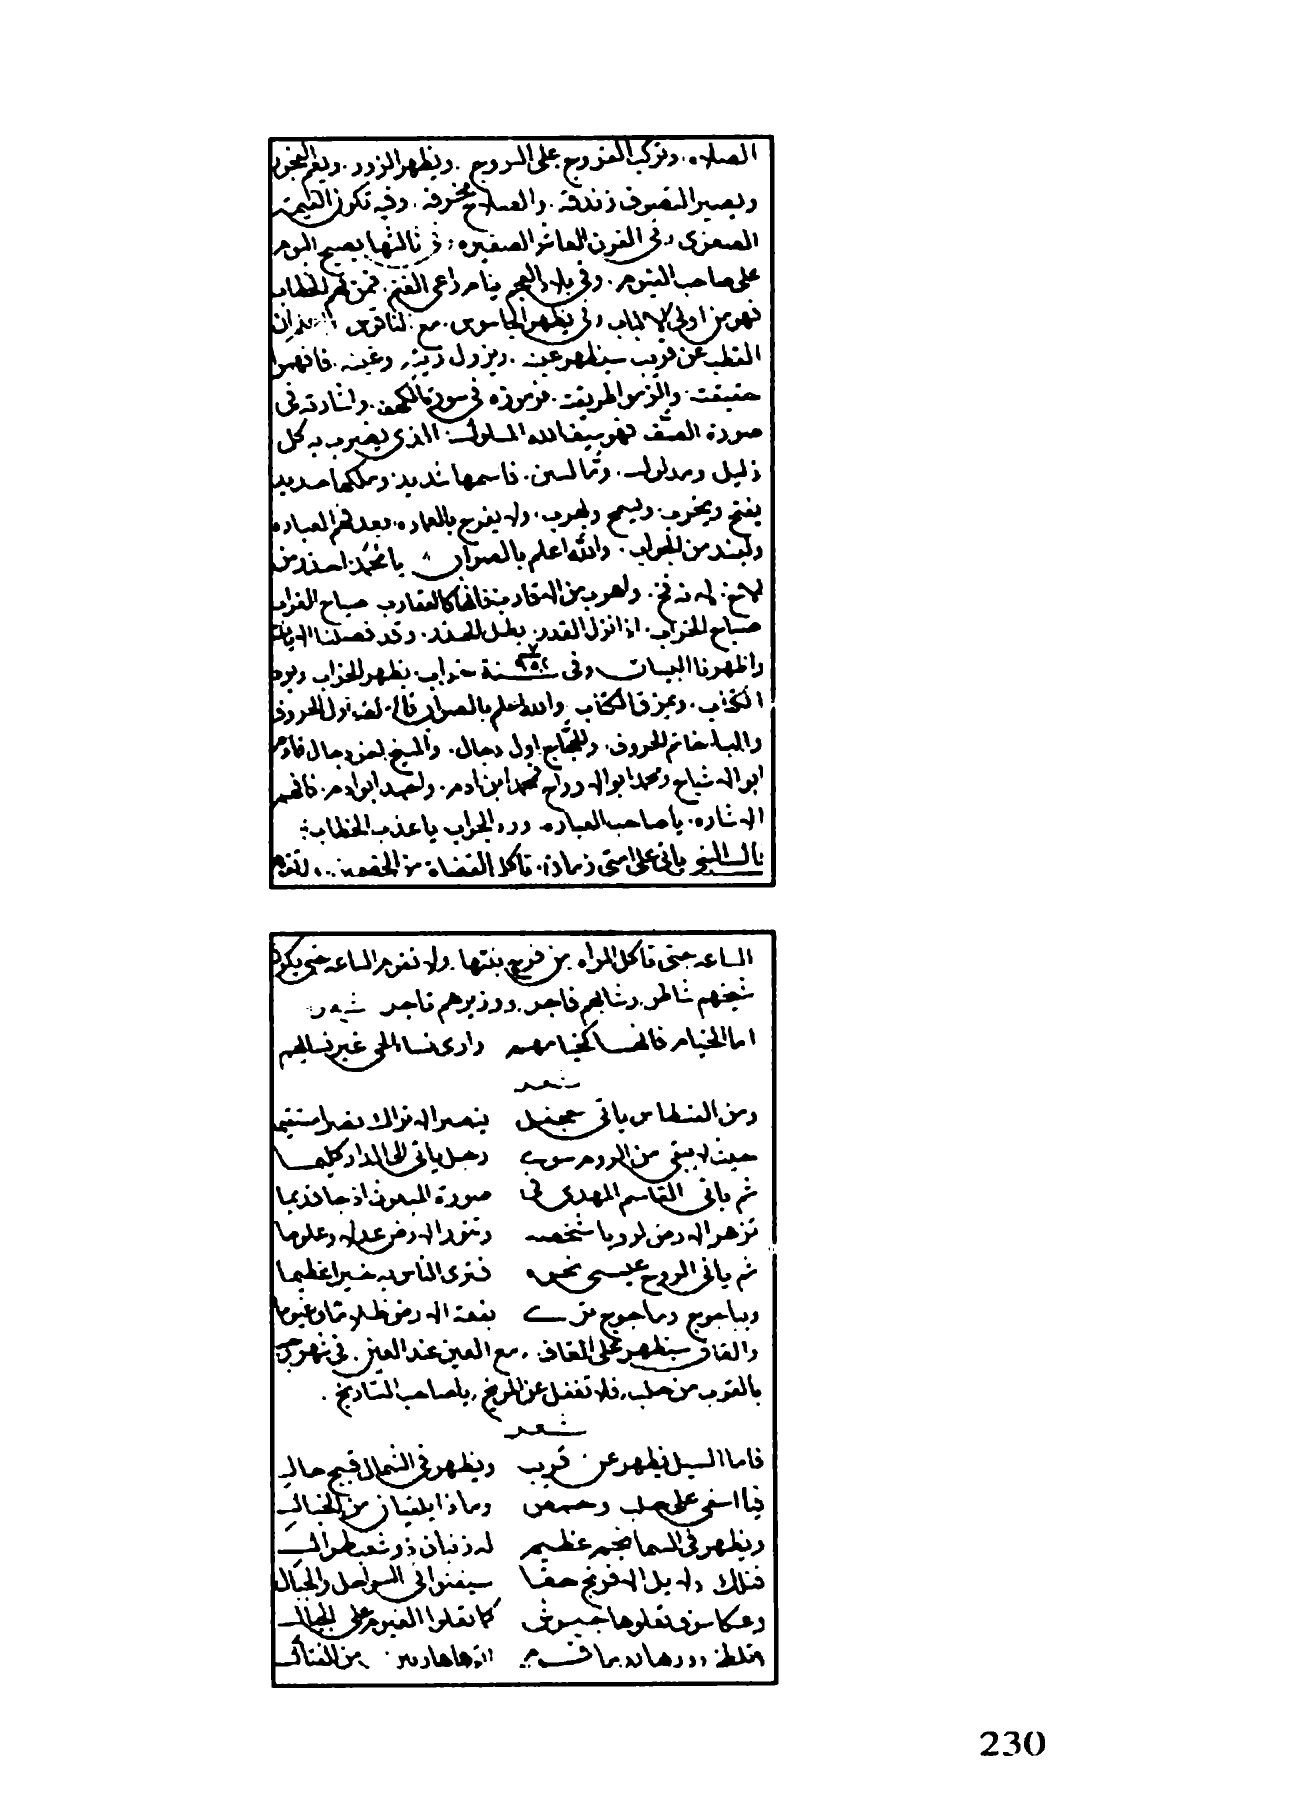 الصلاه. وتركب الفروج على السروج. ويظهر الزور. ويعم الفجور
ويصير التصوف زندقه. والصلاح مخرقه. وفيه تكون القيمة
الصغرى. وفي القرن العاشر الصغيره؛ في ثالثها يصيح البوم
على صاحب الشوم. وفي بلاد العجم ينام راعي الغنم. فمن فهم الخطاب
فهو من اولي الالباب. وفي يظهر الجاسوس. مع الناقوس
القطب عن قريب سيظهر عينه. ويزول رينه وغينه. فافهموا
حقيقته. والزموا طريقته. فرموزه في سورة الكهف. واشارته في
صورة الصف فهو سيف الله المسلول. الذي يضرب به كل
ذليل ومدلول. فاسمها شديد. وملكها حديد
يفتح ويخرب. ويسمح ويهرب. ولا يفرح بالعاره. بعد فهم العباره
من الجواب. والله اعلم بالصواب يا محمد احذر من
واهرب من الاقارب فانها كالعقارب صياح الغراب
صباح الخراب. اذا نزل القدر. بطل الحذر. وقد فصلنا الايات
واظهرنا البينات وفي سنة خراب. يظهر الخراب ويرد
الكذاب. ويمزق الكتاب والله اعلم بالصواب قال الف اول الحروف
واليا خاتم الحروف. والحجاج اول دجال. والمسيح اخر دجال فادم
ابو الاشباح ومحمد ابو الارواح محمد ابن ادم. واحمد ابو ادم. فافهم
الاشاره. يا صاحب العباره ورد الجواب يا عذب الخطاب:
قال النبي ياتي على امتي زمان. تاكل القضاة من الخصمين. ولا تقوم
الساعه حتى تاكل المراه من فرج بنتها. ولا تقوم الساعه حتى يكون
شيخهم شاطر. وشابهم فاجر. ووزيرهم تاجر شعر
اما الخيام فانها كخيامهم وارى نساء الحي غير نسايهم
شعر
ومن الفسطاس ياتي جحفل ينصر الاتراك نصرا مستقيما
حيث لا يبقى من الروم سوى رجل ياتي الى الدار كليما
ثم ياتي القاسم المهدي في صورة المبعوث اذ جا قديما
تزهر الارض لرويا شخصه وتنور الارض عدلا وعلوما
ثم ياتي الروح عيسى نحوه فترى الناس به خيرا عظيما
وبياجوج وماجوج ترى بقعة الارض ظلاما وغيوما
والقاف سيظهر على القاف. مع العين عند العين. في نهر
بالقرب من حلب. فلا تغفل عن المريخ. يا صاحب التاريخ.
شعر
فاما السيل يظهر عن قريب ويظهر في الشمال قبيح حال
فيا اسفي على حلب وحمص وماذا يلقيان من القتال
ويظهر في السما نجم عظيم له ذنبان ذو شعر طوال
فتلك دلايل الافرنج حقا سيفنوا في السواحل والجبال
وعكا سوف تعلوها جيوش كما تعلوا الغيوم على الجبال
230